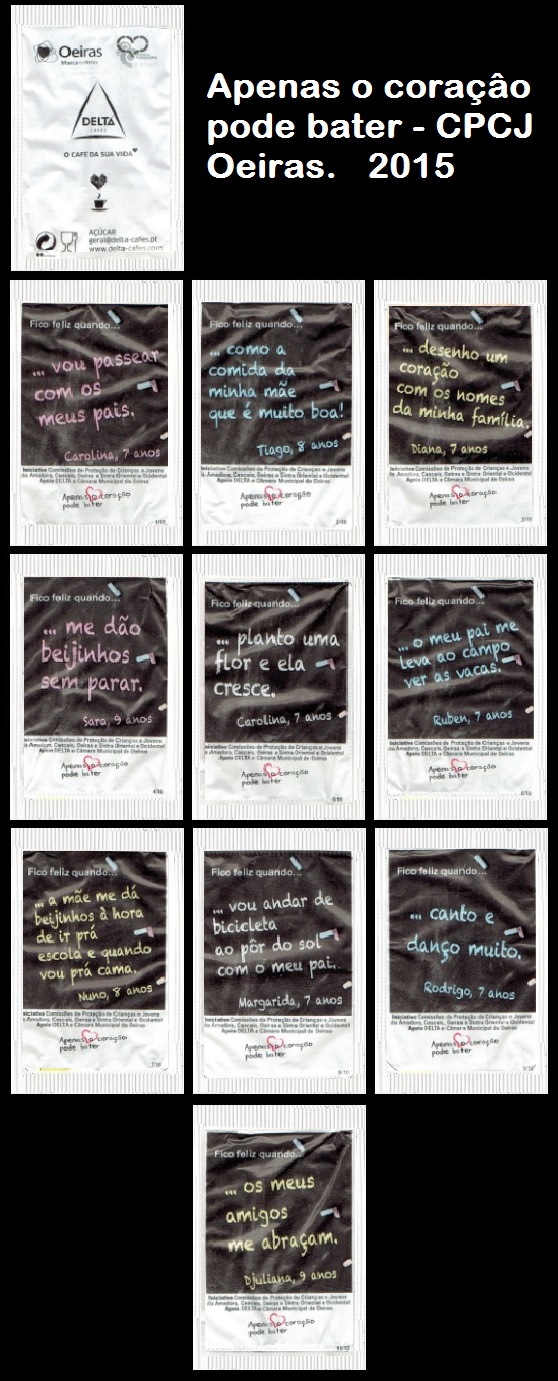 Oeiras
Marca o ritmo
DELTA
CAFÉS
O CAFÉ DA SUA VIDA
AÇÚCAR
geral@delta-cafes.pt
www.delta-cafes.com
Apenas o coraçâo
pode bater - CPCJ
Oeiras. 2015
Fico feliz quando...
... vou passear
com os
meus pais.
Carolina, 7 anos
Iniciativa Comissões de Proteção de Crianças e Jovens
da Amadora, Cascais, Oeiras e Sintra Oriental e Ocidental
Apoio DELTA e Câmara Municipal de Oeiras
Apenas o coração
pode bater
1/10
Fico feliz quando...
... como a
comida da
minha mãe
que é muito boa!
Tiago, 8 anos
Iniciativa Comissões de Proteção de Crianças e Jovens
da Amadora, Cascais, Oeiras e Sintra Oriental e Ocidental
Apoio DELTA e Câmara Municipal de Oeiras
Apenas o coração
pode bater
2/10
Fico feliz quando...
... desenho um
coração
com os nomes
da minha família.
Diana, 7 anos
Iniciativa Comissões de Proteção de Crianças e Jovens
da Amadora, Cascais, Oeiras e Sintra Oriental e Ocidental
Apoio DELTA e Câmara Municipal de Oeiras
Apenas o coração
pode bater
3/10
Fico feliz quando...
... me dão
beijinhos
sem parar.
Sara, 9 anos
Iniciativa Comissões de Proteção de Crianças e Jovens
da Amadora, Cascais, Oeiras e Sintra Oriental e Ocidental
Apoio DELTA e Câmara Municipal de Oeiras
Apenas o coração
pode bater
4/10
Fico feliz quando...
... planto uma
flor e ela
cresce.
Carolina, 7 anos
Iniciativa Comissões de Proteção de Crianças e Jovens
da Amadora, Cascais, Oeiras e Sintra Oriental e Ocidental
Apoio DELTA e Câmara Municipal de Oeiras
Apenas o coração
pode bater
5/10
Fico feliz quando...
... o meu pai me
leva ao campo
ver as vacas.
Ruben, 7 anos
Iniciativa Comissões de Proteção de Crianças e Jovens
da Amadora, Cascais, Oeiras e Sintra Oriental e Ocidental
Apoio DELTA e Câmara Municipal de Oeiras
Apenas o coração
pode bater
6/10
Fico feliz quando...
... a mãe me dá
beijinhos à hora
de ir prá
escola e quando
vou prá cama.
Nuno, 8 anos
Iniciativa Comissões de Proteção de Crianças e Jovens
da Amadora, Cascais, Oeiras e Sintra Oriental e Ocidental
Apoio DELTA e Câmara Municipal de Oeiras
Apenas o coração
pode bater
7/10
Fico feliz quando...
... vou andar de
bicicleta
ao pôr do sol
com o meu pai.
Margarida, 7 anos
Iniciativa Comissões de Proteção de Crianças e Jovens
da Amadora, Cascais, Oeiras e Sintra Oriental e Ocidental
Apoio DELTA e Câmara Municipal de Oeiras
Apenas o coração
pode bater
8/10
Fico feliz quando...
... canto e
danço muito.
Rodrigo, 7 anos
Iniciativa Comissões de Proteção de Crianças e Jovens
da Amadora, Cascais, Oeiras e Sintra Oriental e Ocidental
Apoio DELTA e Câmara Municipal de Oeiras
Apenas o coração
pode bater
9/10
Fico feliz quando...
... os meus
amigos
me abraçam.
Djuliana, 9 anos
Iniciativa Comissões de Proteção de Crianças e Jovens
da Amadora, Cascais, Oeiras e Sintra Oriental e Ocidental
Apoio DELTA e Câmara Municipal de Oeiras
Apenas o coração
pode bater
10/10